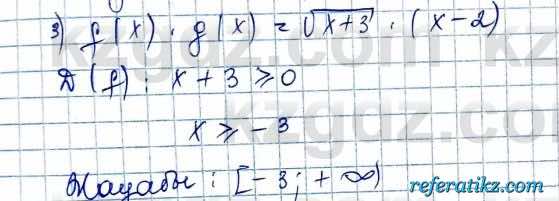 3) f(x) · g(x) = √x+3 · (x-2)
D(f): x + 3 ⩾ 0
x ⩾ -3
Жауабы: [-3; +∞)
kzgdz.com
referatikz.com